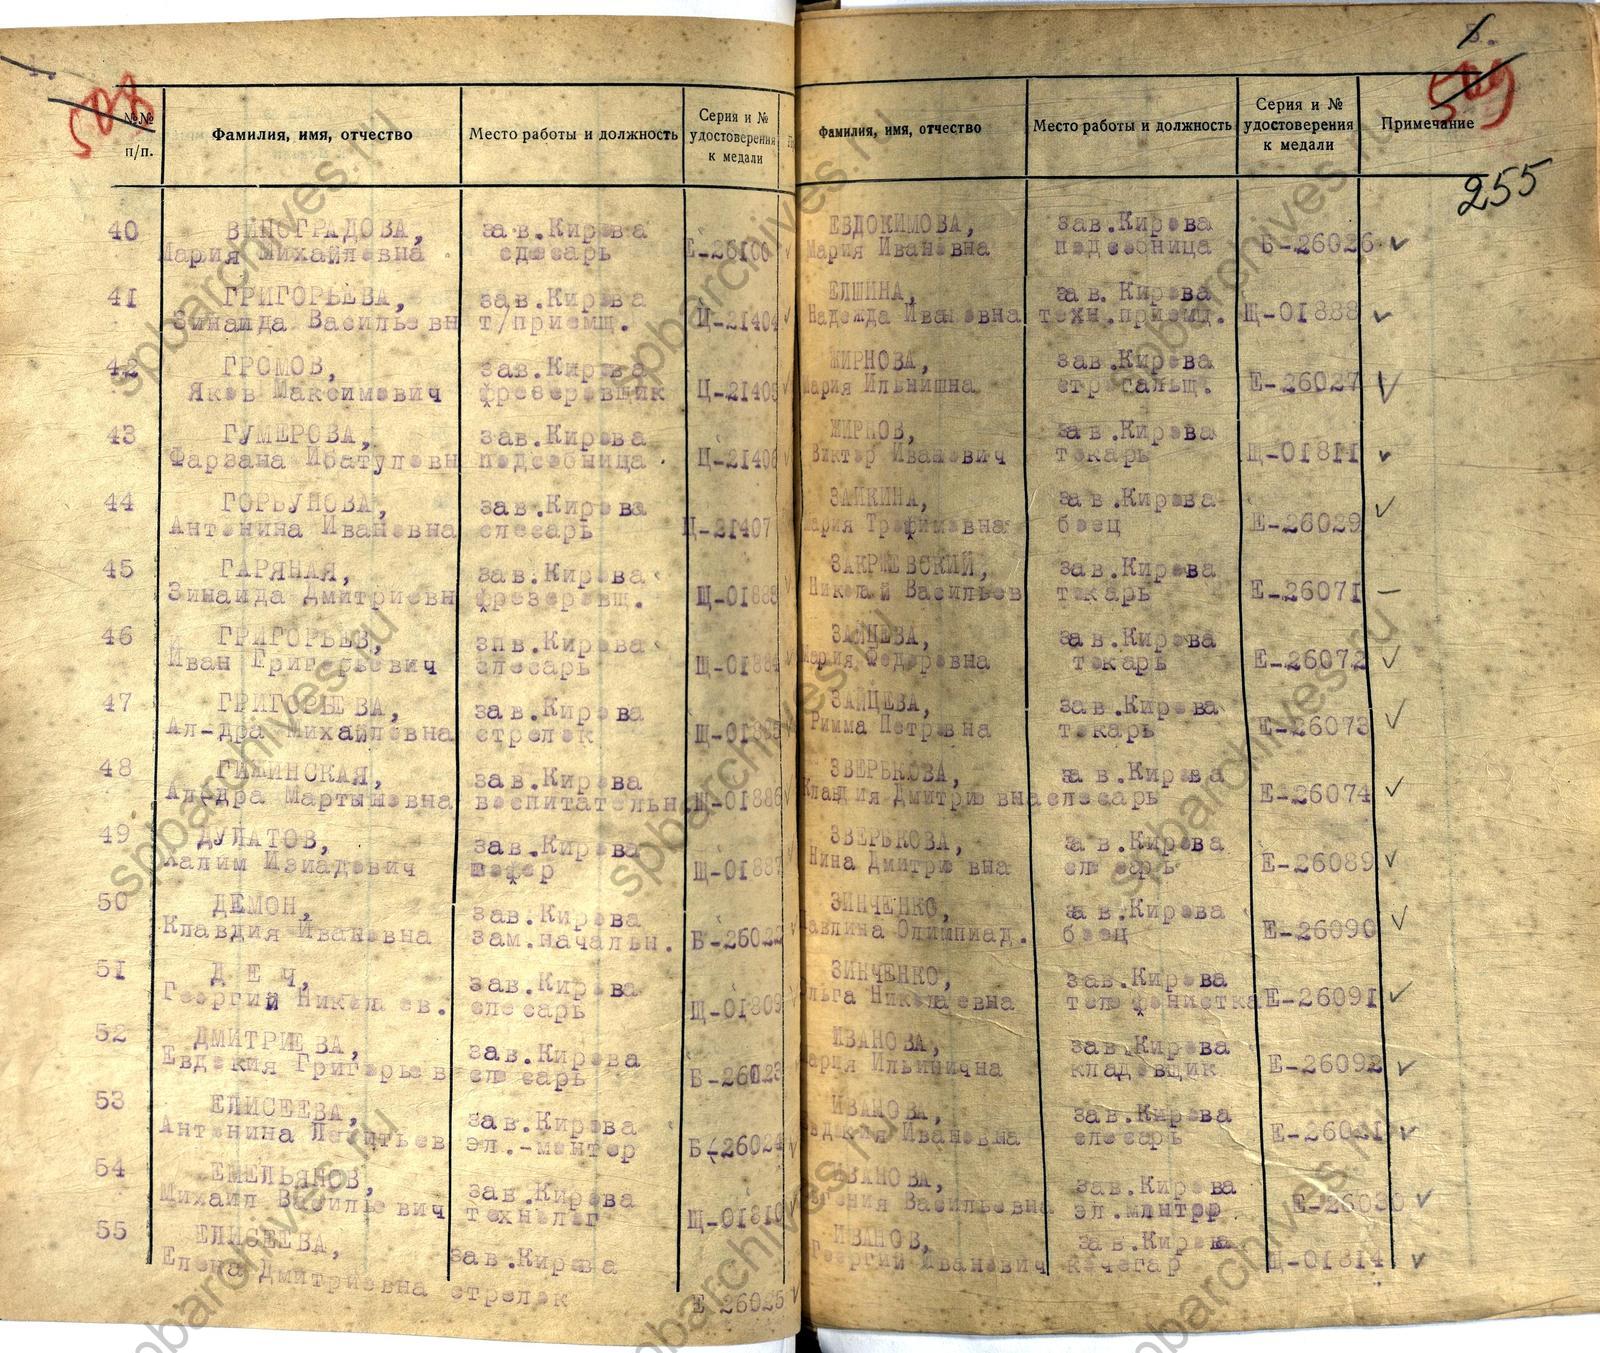 508
№№
п/п.
Фамилия, имя, отчество
Место работы и должность
Серия и №
удостоверения
к медали
40 ВИНОГРАДОВА, зав.Кирова
Мария Михайловна слесарь Е-26100
41 ГРИГОРЬЕВА, зав.Кирова
Зинаида Васильевн т/приемщ. Ц-21404
42 ГРОМОВ, зав.Кирова
Яков Максимович фрезеровщик Ц-21405
43 ГУМЕРОВА, зав.Кирова
Фарзана Ибатуловн подсобница Ц-21406
44 ГОРБУНОВА, зав.Кирова
Антонина Ивановна слесарь Ц-21407
45 ГАРЯНАЯ, зав.Кирова
Зинаида Дмитриевн фрезеровщ. Щ-01883
46 ГРИГОРЬЕВ, зпв.Кирова
Иван Григорьевич слесарь Щ-01884
47 ГРИГОРЬЕВА, зав.Кирова
Ал-дра Михайловна стрелок Щ-01885
48 зав.Кирова
Мартышовна воспитательн Щ-01886
49 ДУЛАТОВ, зав.Кирова
Халим Изиадович шофер Щ-01887
50 ДЕМОН, зав.Кирова
Клавдия Ивановна зам.начальн. Б-26022
51 Д Е Ч, зав.Кирова
Георгий Николаев. слесарь Щ-01809
52 ДМИТРИЕВА, зав.Кирова
Евдокия Григорьев слесарь Б-26023
53 ЕЛИСЕЕВА, зав.Кирова
Антонина эл.-монтер Б-26024
54 ЕМЕЛЬЯНОВ, зав.Кирова
Михаил Васильевич технолог Щ-01810
55 ЕЛИСЕЕВА, зав.Кирова
Елена Дмитриевна стрелок Е 26025
5.
509
Фамилия, имя, отчество
Место работы и должность
Серия и №
удостоверения
к медали
Примечание
255
ЕВДОКИМОВА, зав.Кирова
Мария Ивановна подсобница Б-26026
ЕЛШИНА, зав. Кирова
Надежда Ивановна техн.приемщ. Щ-01888
ЖИРНОВА, зав.Кирова
Мария Ильинишна строгальщ. Е-26027
ЖИРНОВ, зав.Кирова
Виктор Иванович токарь Щ-01811
ЗАИКИНА, зав.Кирова
Мария Трофимовна боец Е-26029
ЗАКРЖЕВСКИЙ, зав.Кирова
Николай Васильев токарь Е-26071
ЗАЙЦЕВА, зав.Кирова
Мария Федоровна токарь Е-26072
ЗАЙЦЕВА, зав.Кирова
Римма Петровна токарь Е-26073
ЗВЕРЬКОВА, зав.Кирова
Клавдия Дмитриевна слесарь Е-26074
ЗВЕРЬКОВА, зав.Кирова
Нина Дмитриевна слесарь Е-26089
ЗИНЧЕНКО, зав.Кирова
Павлина Олимпиад. боец Е-26090
ЗИНЧЕНКО, зав.Кирова
Ольга Николаевна телефонистка Е-26091
ИВАНОВА, зав.Кирова
Мария Ильинична кладовщик Е-26092
ИВАНОВА, зав.Кирова
Евдокия Ивановна слесарь Е-26021
ИВАНОВА, зав.Кирова
Васильевна эл.монтер Е-26030
ИВАНОВ, зав.Кирова
Георгий Иванович кочегар Щ-01814
spbarchives.ru